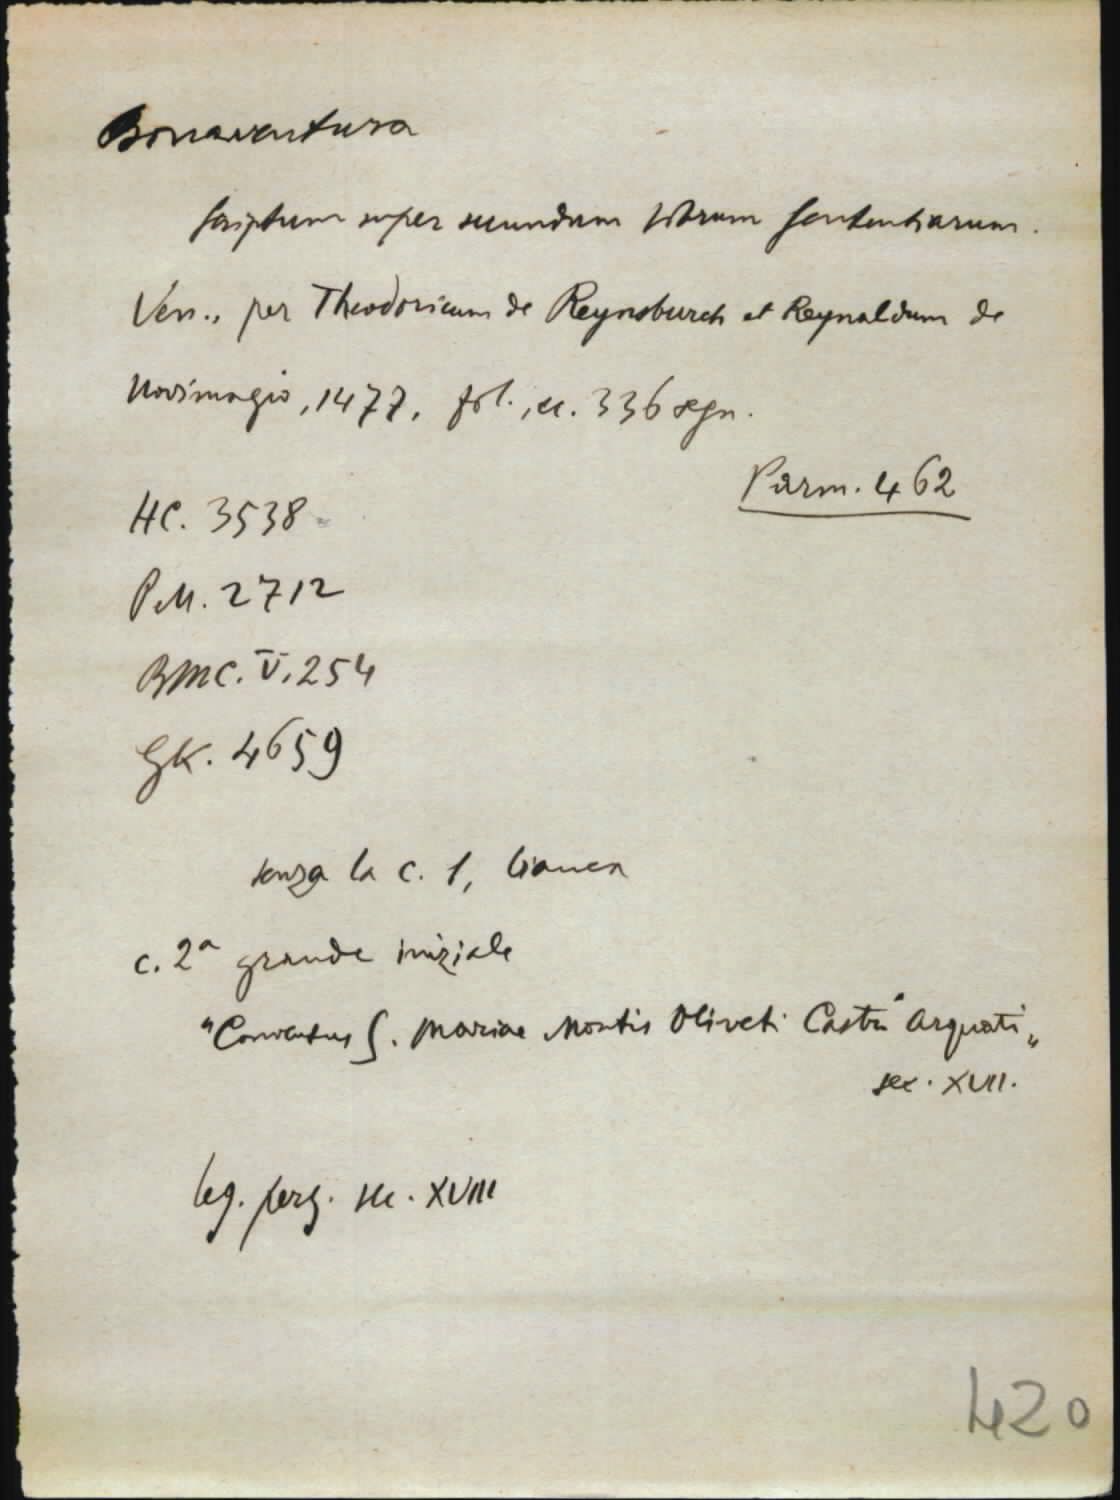 Bonaventura
Scriptum super secundum librum Sententiarum.
Ven., per Theodoricum de Reynsburch et Reynaldum de
Novimagio, 1477, fol., cc. 336 segn.
Parm. 462
HC. 3538
Pell. 2712
BMC. V. 254
GK. 4659
senza la c. 1, bianca
c. 2ª grande iniziale
"Conventus S. Mariae Montis Oliveti Castri Arquati"
sec. XVII.
leg. perg. sec. XVIII
420